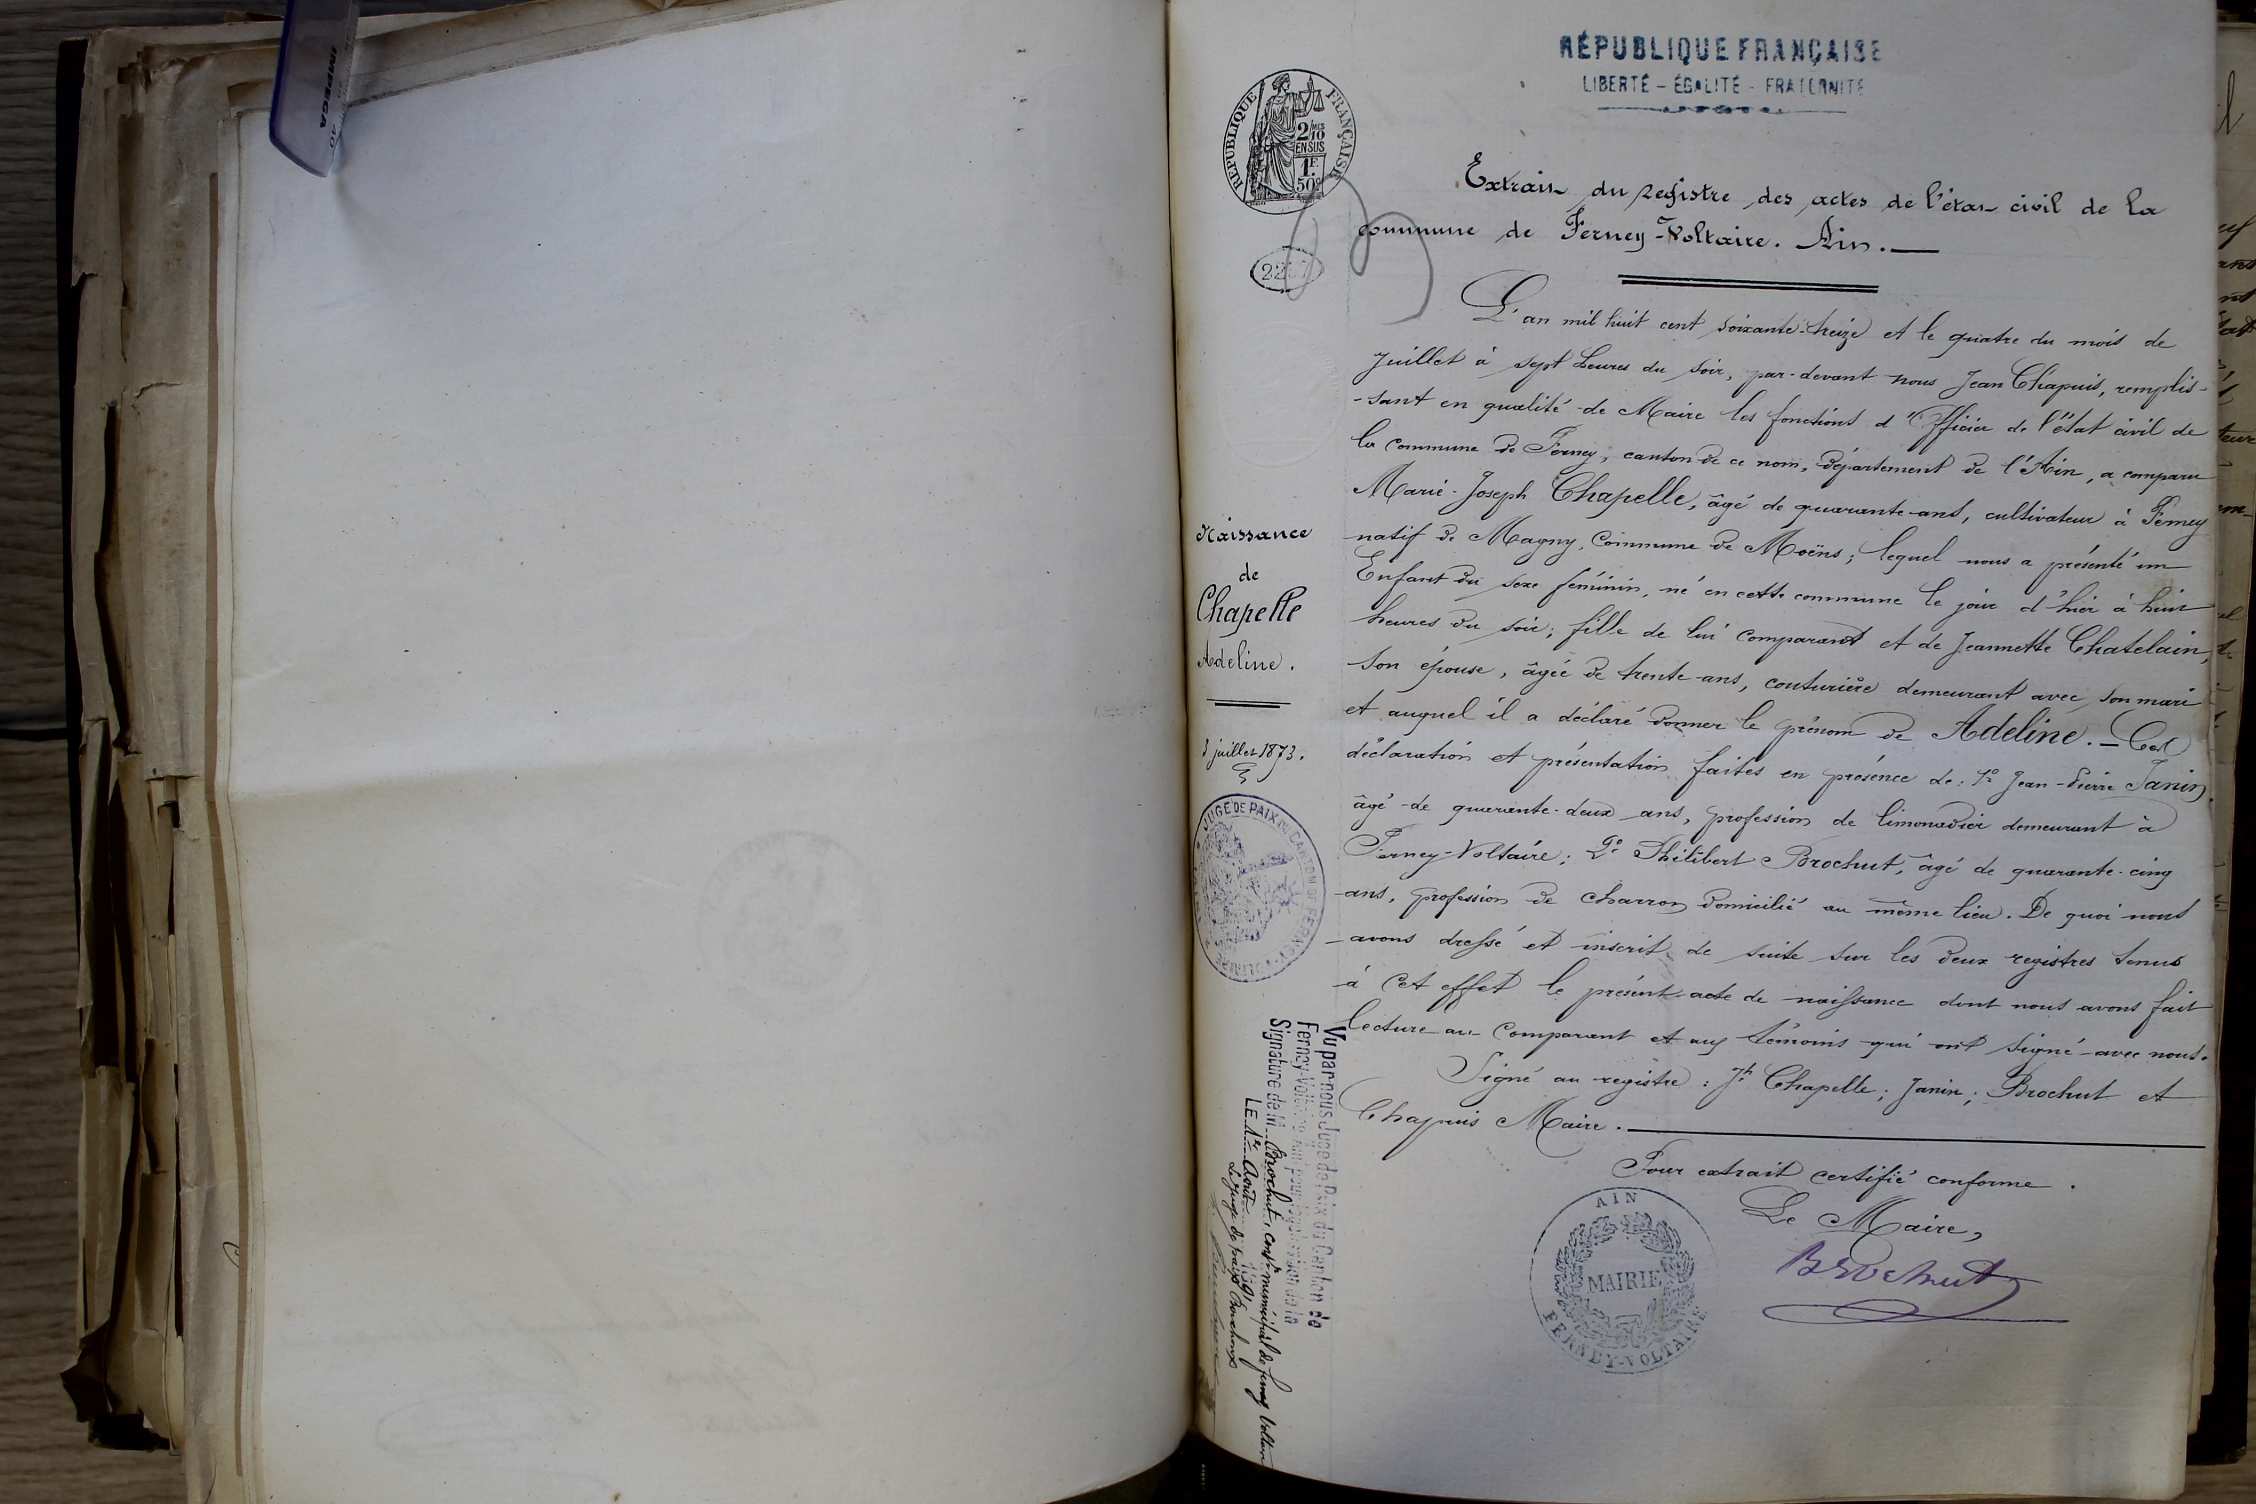 IMPEGA
RÉPUBLIQUE FRANÇAISE
LIBERTÉ - ÉGALITÉ - FRATERNITÉ
RÉPUBLIQUE FRANÇAISE
2/10 EN SUS
1F.
50c
Extrait du registre des actes de l'état civil de la
commune de Ferney-Voltaire. Ain.
L'an mil huit cent soixante-treize et le quatre du mois de
Juillet à sept heures du soir, par-devant nous Jean Chapuis, remplis-
-sant en qualité de Maire les fonctions d'Officier de l'état civil de
la commune de Ferney, canton de ce nom, département de l'Ain, a comparu
Marie-Joseph Chapelle, âgé de quarante-ans, cultivateur à Ferney
natif de Magny, Commune de Moëns; lequel nous a présenté un
Enfant du sexe féminin, né en cette commune le jour d'hier à huit
heures du soir; fille de lui comparant et de Jeannette Chatelain,
son épouse, âgée de trente-ans, couturière demeurant avec son mari
et auquel il a déclaré donner le prénom de Adeline. _ Ces
déclaration et présentation faites en présence de: 1° Jean-Pierre Janin
âgé de quarante-deux ans, profession de limonadier demeurant à
Ferney-Voltaire; 2° Philibert Brochut, âgé de quarante-cinq
ans, profession de charron domicilié au même lieu. De quoi nous
avons dressé et inscrit de suite sur les deux registres tenus
à cet effet le présent acte de naissance dont nous avons fait
lecture au comparant et aux témoins qui ont signé avec nous.
Signé au registre: Jh Chapelle; Janin; Brochut et
Chapuis Maire.
Pour extrait certifié conforme.
Le Maire,
Brochut
AIN
MAIRIE
FERNEY-VOLTAIRE
Naissance
de
Chapelle
Adeline.
3 juillet 1873.
JUGE DE PAIX DU CANTON DE FERNEY-VOLTAIRE
Vu par nous Juge de Paix du Canton de
Ferney-Voltaire pour légalisation de la
Signature de M. Brochut, consr municipal de Ferney Voltaire
LE 1er Août 1891
Le Juge de paix